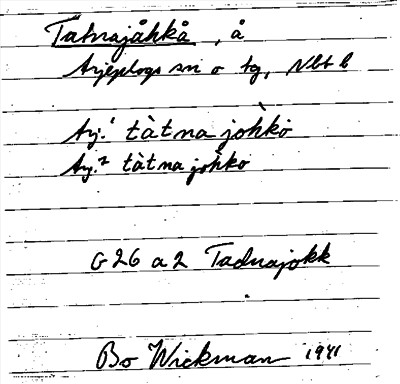 Tatnajåhkå, å
Arjeplogs sn o tg, Nbt l
Arj.¹ tàtna jòhkò
Arj.² tàtna johko
G 26 a 2 Tadnajokk
Bo Wickman 1941